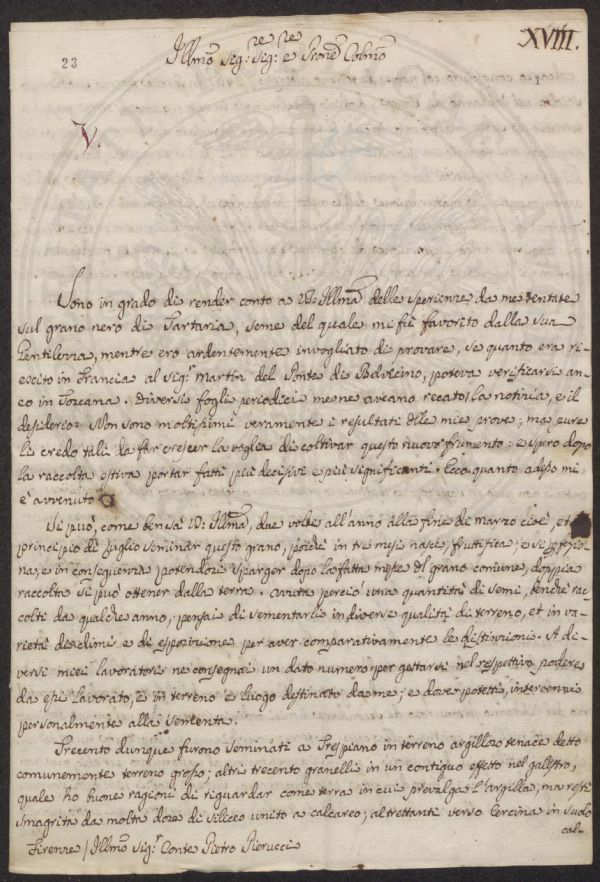 XVIII.
23
Illmo Sig:re Sig:re e Prone Colmo
1
V.
Sono in grado di render conto a VS: Illma delle sperienze da me tentate
sul grano nero di Tartaria, seme del quale mi fù favorito dalla Sua
Gentilezza, mentre ero ardentemente invogliato di provare, se quanto era ri-
escito in Francia al Sigr Martin del Ponte di Belvicino, poteva verificarsi an-
co in Toscana. Diversi fogli periodici me ne aveano recato la notizia, e il
desiderio. Non sono moltissimi veramente i resultati delle mie prove; ma pure
li credo tali da far crescer la voglia di coltivar questo nuovo frumento: e spero dopo
la raccolta estiva portar fatti più decisivi e più significanti. Ecco quanto adesso mi
è avvenuto.
Si può, come ben sà VS: Illma, due volte all'anno alla fine di marzo cioè, et
principio di Luglio seminar questo grano, poichè in tre mesi nasce, fruttifica, e si perfezio-
na, e in conseguenza potendosi sparger dopo la fatta messe del grano comune, doppia
raccolta si può ottener dalla terra. Avuta perciò una quantità di semi, benchè rac-
colti da qualche anno, pensai di sementarli in diverse qualità di terreno, et in va-
rietà di climi e di esposizione per aver comparativamente le distinzioni. A di-
versi miei lavoratori ne consegnai un dato numero per gettarsi nel respettivo podere
da essi lavorato, e in terreno e luogo destinato da me; e dove potetti, intervenni
personalmente alla sementa.
Trecento dunque furono seminati a Trespiano in terreno argilloso tenace detto
comunemente terreno grosso; altri trecento granelli in un contiguo effetto nel galestro,
quale ho buone ragioni di riguardar come terra in cui prevalga l'argilla, ma resti
smagrita da molta dose di siliceo unito a calcareo; altrettanti verso Cercina in suolo
cal-
Firenze / Illmo Sigr Conte Pietro Pierucci